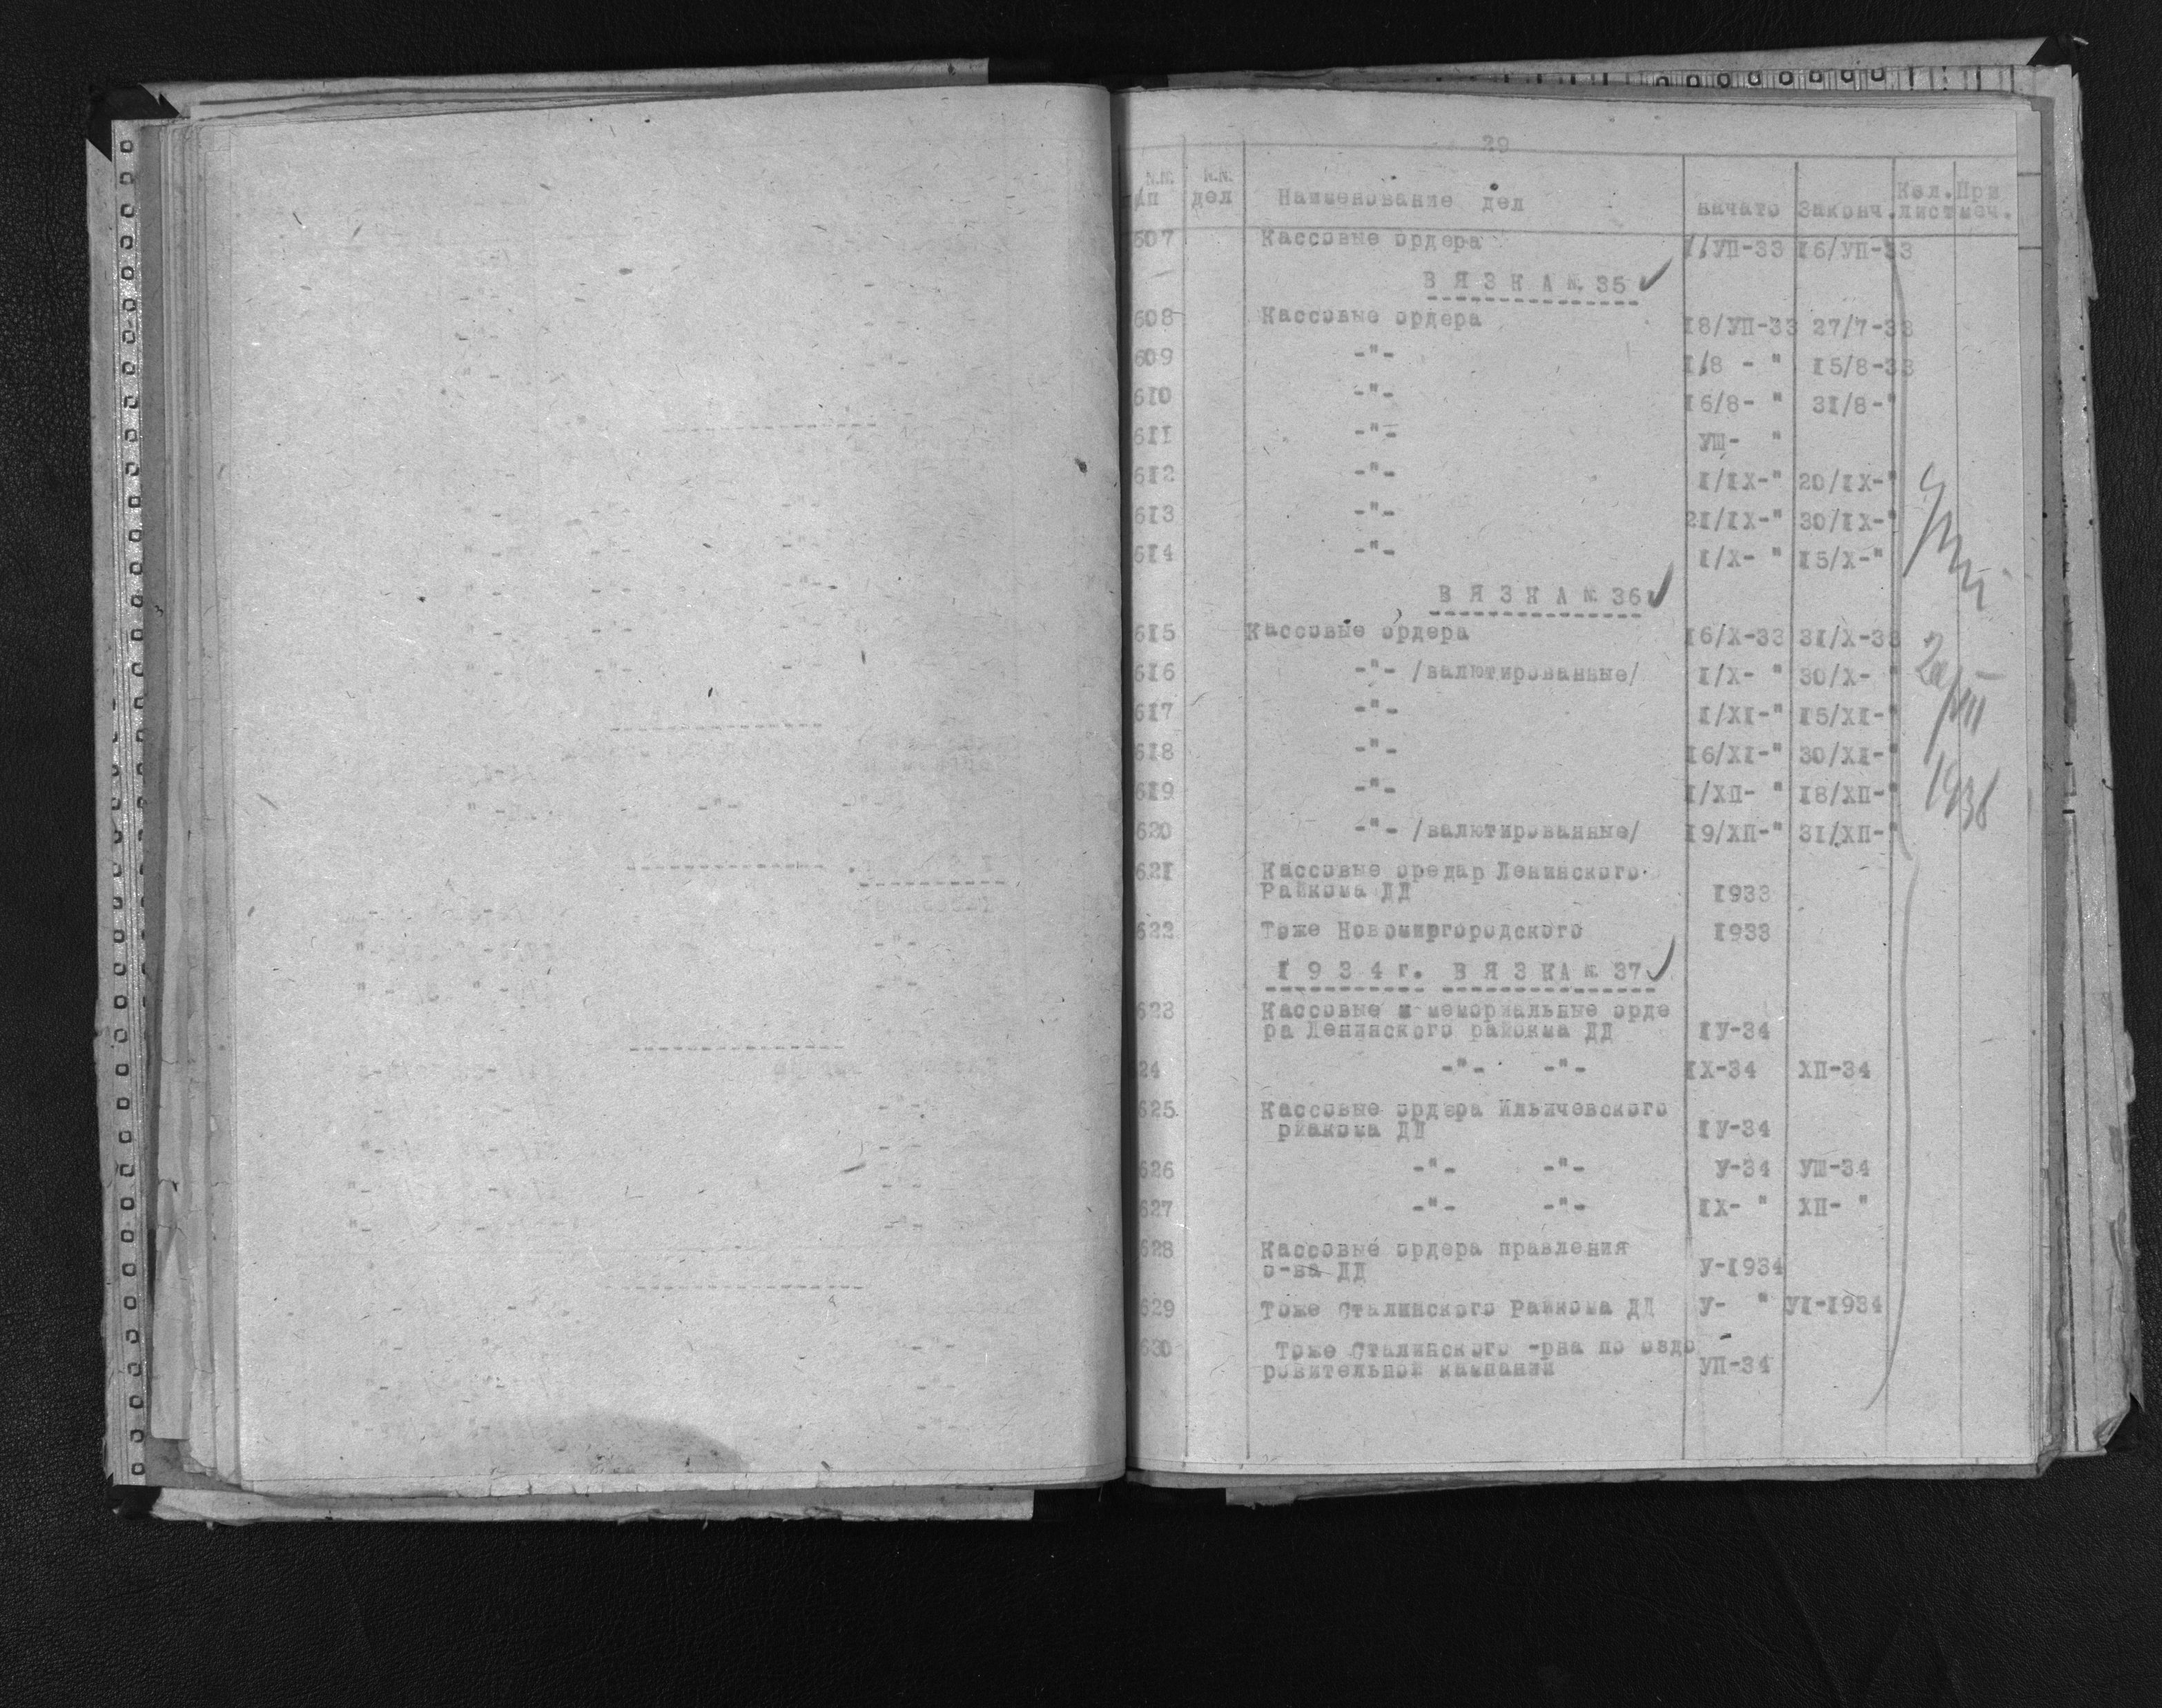 29
N.N. п/п N.N. дел Наименование дел начато Законч. Кол. лист При меч.
607 Кассовые ордера 1/УП-33 16/УП-33
В Я З К А №. 35
608 Кассовые ордера 18/УП-33 27/7-33
609 -"- 1/8 - " 15/8-33
610 -"- 16/8- " 31/8-"
611 -"- УШ- "
612 -"- I/IX-" 20/IX-"
613 -"- 21/IX-" 30/IX-"
614 -"- I/X- " 15/X-"
В Я З К А № 36
615 Кассовые ордера 16/X-33 31/X-33
616 -"- /валютированные/ I/X- " 30/X- "
617 -"- I/XI-" 15/XI-"
618 -"- 16/XI-" 30/XI-"
619 -"- I/ХП- " 18/ХП-"
620 -"- /валютированные/ 19/ХП-" 31/ХП-"
621 Кассовые оредар Ленинского
Райкома ДД 1933
622 Тоже Новомиргородского 1933
1 9 3 4 г. В Я З КА № 37
623 Кассовые и мемориальные орде
ра Ленинского райокма ДД IУ-34
24 -"- -"- IX-34 ХП-34
625 Кассовые ордера Ильичевского
риакома ДД IУ-34
626 -"- -"- У-34 УШ-34
627 -"- -"- IX- " ХП- "
628 Кассовые ордера правления
о-ва ДД У-1934
629 Тоже Сталинского Райкома ДД У- " УI-1934
630 Тоже Сталинского -рна по оздо
ровительной кампании УП-34
1936